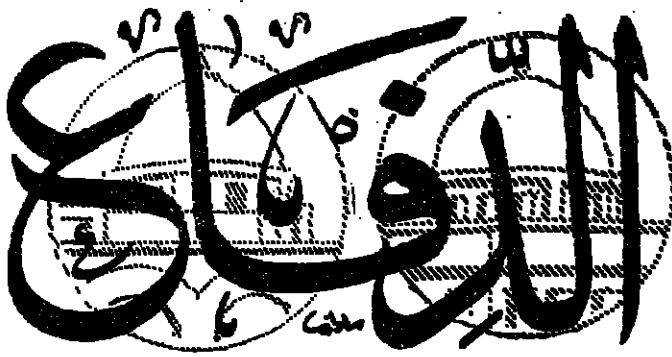 الدفاع